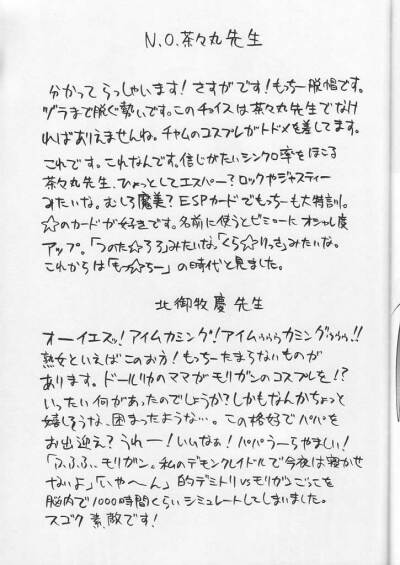 N.O.茶々丸先生
分かってらっしゃいます！さすがです！もっちー脱帽です。
ヅラまで脱ぐ勢いです。このチョイスは茶々丸先生でなけ
ればありえませんね。チャムのコスプレがトドメを差してます。
これです。これなんです。信じがたいシンクロ率をほこる
茶々丸先生、ひょっとしてエスパー？ロックやジャスティー
みたいな。むしろ魔美？ESPカードでもっちーも大特訓。
☆のカードが好きです。名前に使うとビミョーにオシャレ度
アップ。「つのた☆ろう」みたいな。「くら☆りっさ」みたいな。
これからは「もっ☆ちー」の時代と見ました。
北御牧慶先生
オーイエスッ！アイムカミング！アイムぅぅぅカミングぅぅぅ!!
熟女といえばこのお方！もっちーたまらないものが
あります。ドールリカのママがモリガンのコスプレを!?
いったい何があったのでしょうか？しかもなんかちょっと
嬉しそうな、困ったような…。この格好でパパを
お出迎え？うれー！いいなぁ！パパうーらやましい！
「ふふふ、モリガン。私のデモンクレイドルで今夜は寝かせ
ないよ」「いや〜ん」的デミトリvsモリガンごっこを
脳内で1000時間くらいシミュレートしてしまいました。
スゴク素敵です！